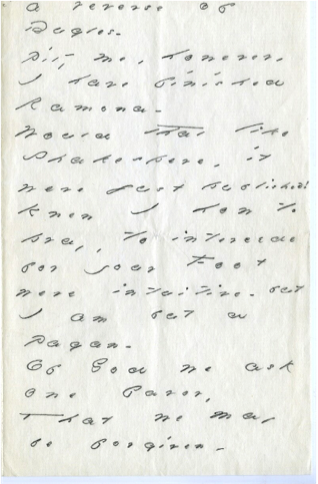 a reverse of
Bugles -
Pity me, however,
I have finished
Ramona -
Would that like
Shakespeare, it
were just published!
Knew I how to
pray, to intercede
for your Foot
were intuitive - but
I am but a
Pagan -
Of God we ask
one favor,
That we may
be forgiven -